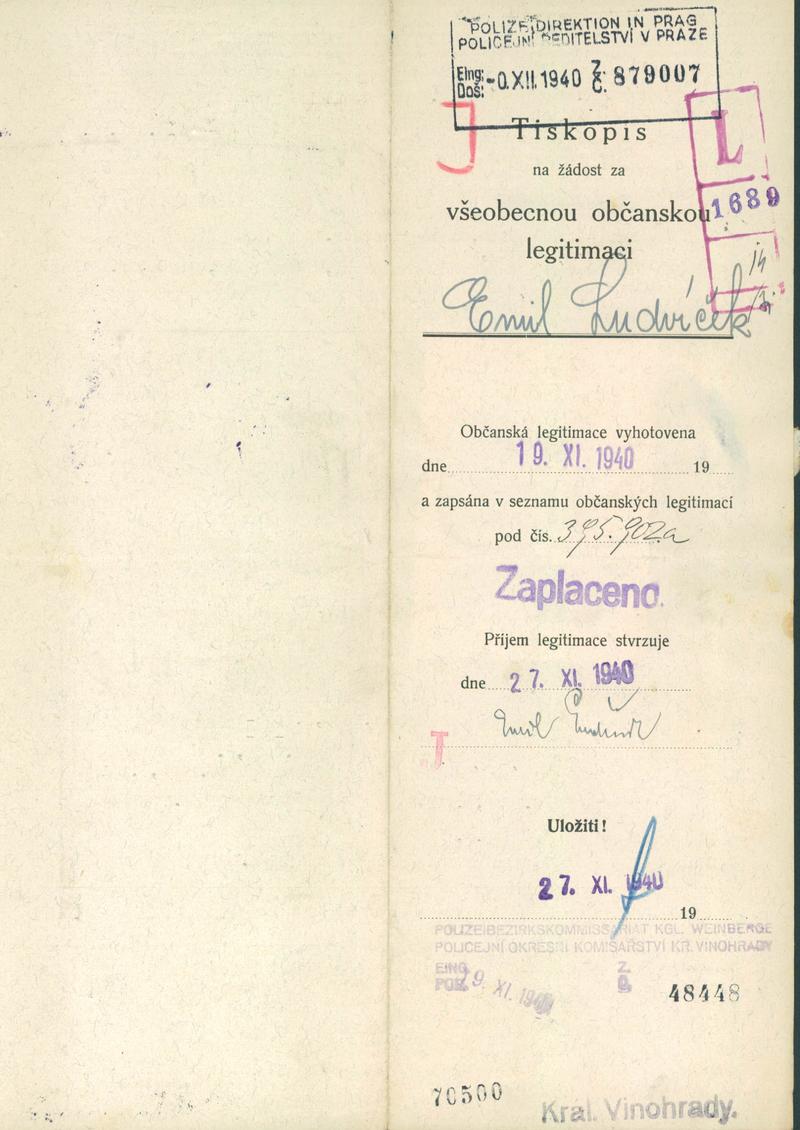 POLIZEIDIREKTION IN PRAG
POLICEJNÍ ŘEDITELSTVÍ V PRAZE
Eing: Doš: -0.XII.1940 Z. Č. 879007
Tiskopis
L
na žádost za
všeobecnou občanskou
1689
legitimaci
14
Emil Ludvíček
Občanská legitimace vyhotovena
dne 19. XI. 1940 19
a zapsána v seznamu občanských legitimací
pod čís. 395.902a
Zaplaceno.
Příjem legitimace stvrzuje
dne 27. XI. 1940
Emil
J
Uložiti!
27. XI. 1940
19
POLIZEIBEZIRKSKOMMISSARIAT KGL. WEINBERGE
POLICEJNÍ OKRESNÍ KOMISAŘSTVÍ KR. VINOHRADY
EING. Z.
19. XI. 1940
48448
70500
Král. Vinohrady.